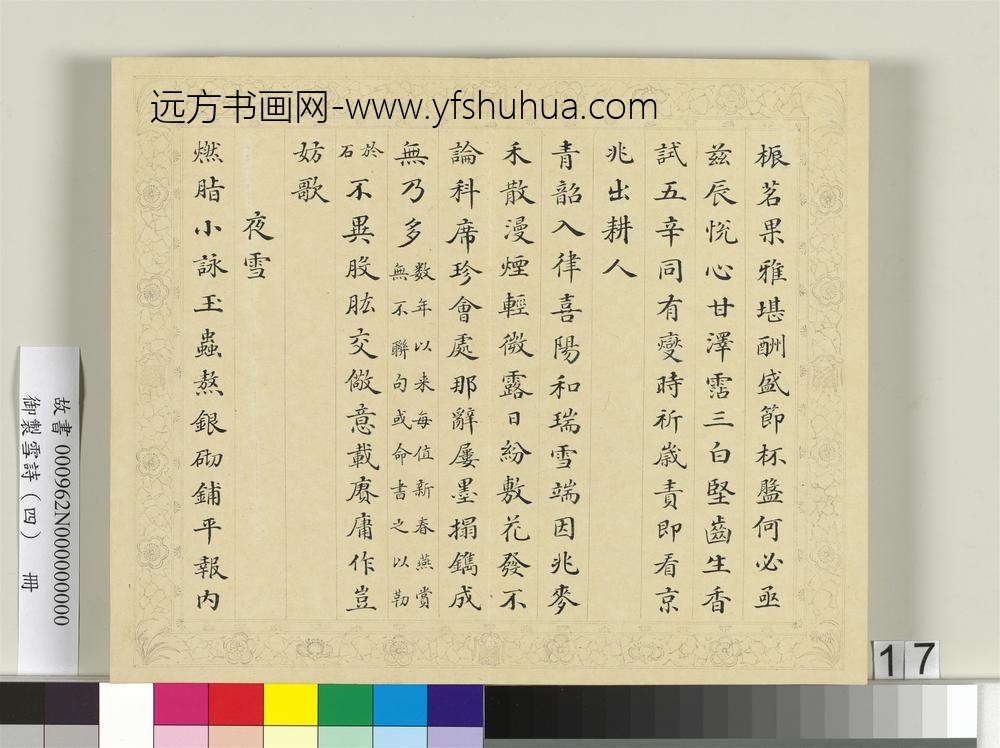 远方书画网-www.yfshuhua.com
榐茗果雅堪酬盛節杯盤何必亟
茲辰悅心甘澤霑三白堅齒生香
試五辛同有變時祈歲責即看京
兆出耕人
青韶入律喜陽和瑞雪端因兆麥
禾散漫煙輕微露日紛敷花發不
論科席珍會處那辭屢墨搨鐫成
無乃多數年以来每值新春燕賞
無不聯句或命書之以勒
於
石不異股肱交儆意載賡庸作豈
妨歌
夜雪
燃脂小詠玉蟲熬銀砌鋪平報内
故書 000962N000000000
御製雪詩(四) 冊
17